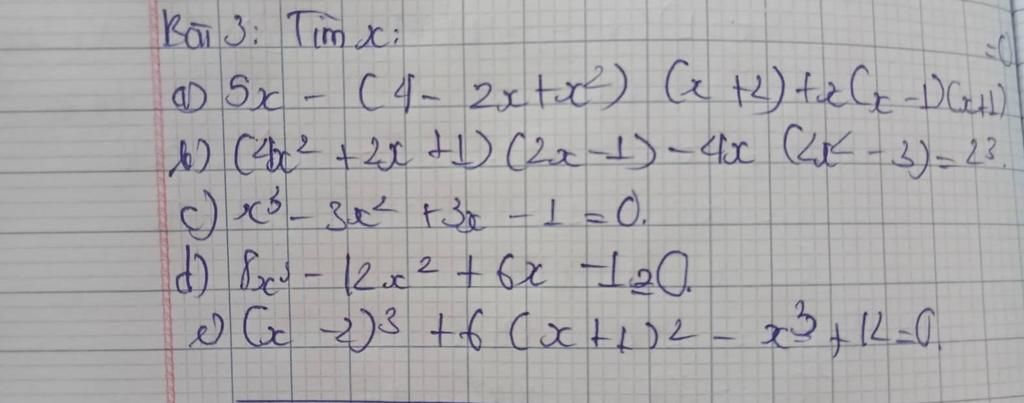 Bài 3: Tìm x:
a) 5x - (4 - 2x + x²) (x + 2) + x(x - 1)(x+1) =0
b) (4x² + 2x + 1) (2x - 1) - 4x (2x² - 3) = 23.
c) x³ - 3x² + 3x - 1 = 0.
d) 8x³ - 12x² + 6x - 1 = 0.
e) (x - 2)³ + 6 (x + 1)² - x³ + 12 = 0.